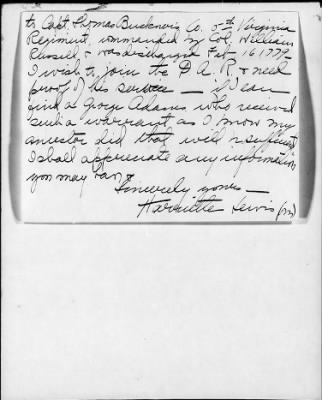 to Capt. Thomas Buckner's Co. 5th Virginia
Regiment, commanded by Col. William
Russell & was discharged Feb 16 1779.
I wish to join the D. A. R. & need
proof of his service — if I can
find a George Adams who received
such a warrant as I know my
ancestor did that will be sufficient
I shall appreciate any information
you may have.
Sincerely yours —
Harriette Lewis (Mrs)